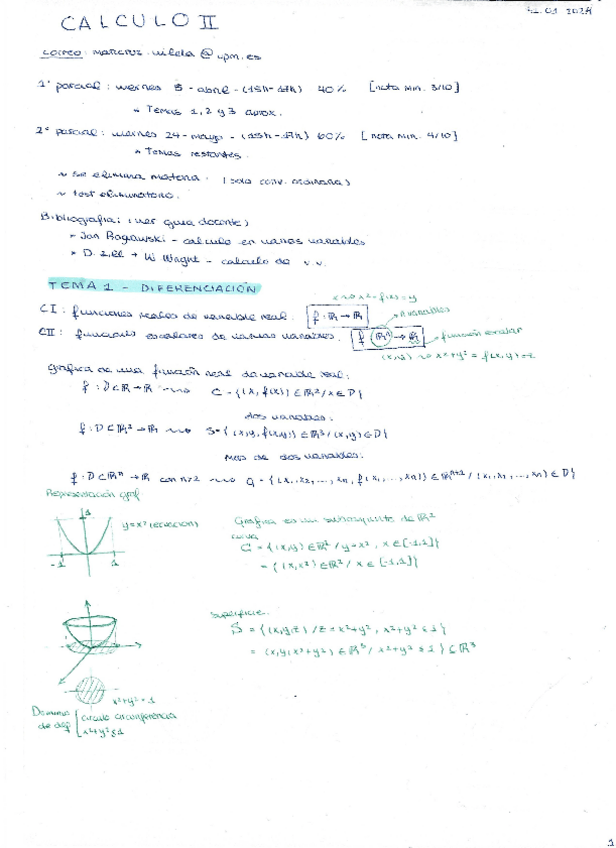 31.01 2024
CALCULO II
correo: maricruz.vilela@upm.es
1º parcial: viernes 5-abril-(15h-17h) 40% [nota min. 3/10]
→ Temas 1, 2 y 3 aprox.
2º parcial: viernes 24-mayo-(15h-17h) 60% [nota min. 4/10]
→ Temas restantes.
→ Se elimina materia. (solo conv. ordinaria)
→ test eliminatorio.
Bibliografia: (ver guia docente)
→ Jon Rogawski - calculo en varias variables
→ D. Zill + W. Wright - calculo de v.v.
TEMA 1 - DIFERENCIACIÓN
x → x² = f(x) = y
CI: funciones reales de variable real. f: ℝ → ℝ
n variables
CII: funciones escalares de varias variables. f: ℝⁿ → ℝ
función escalar
(x,y) → x²+y² = f(x,y) = z
Gráfica de una función real de variable real:
f: D⊂ℝ → ℝ ⤳ C = {(x, f(x)) ∈ ℝ² / x ∈ D}
dos variables:
f: D⊂ℝ² → ℝ ⤳ S = {(x, y, f(x,y)) ∈ ℝ³ / (x,y) ∈ D}
Mas de dos variables:
f: D⊂ℝⁿ → ℝ con n>2 ⤳ G = {(x₁, x₂, ..., xₙ, f(x₁, ..., xₙ)) ∈ ℝⁿ⁺¹ / (x₁, x₂, ..., xₙ) ∈ D}
Representación graf
1
y=x² (ecuacion)
-1
1
Grafica es un subconjunto de ℝ²
curva
C = {(x,y) ∈ ℝ² / y=x², x ∈ [-1,1]}
= {(x,x²) ∈ ℝ² / x ∈ [-1,1]}
superficie.
S = {(x,y,z) / z=x²+y², x²+y² ≤ 1}
= (x,y,(x²+y²) ∈ ℝ³ / x²+y² ≤ 1} ⊆ ℝ³
x²+y²=1
Dominio
de def
circulo circunferencia
x²+y²≤1
1